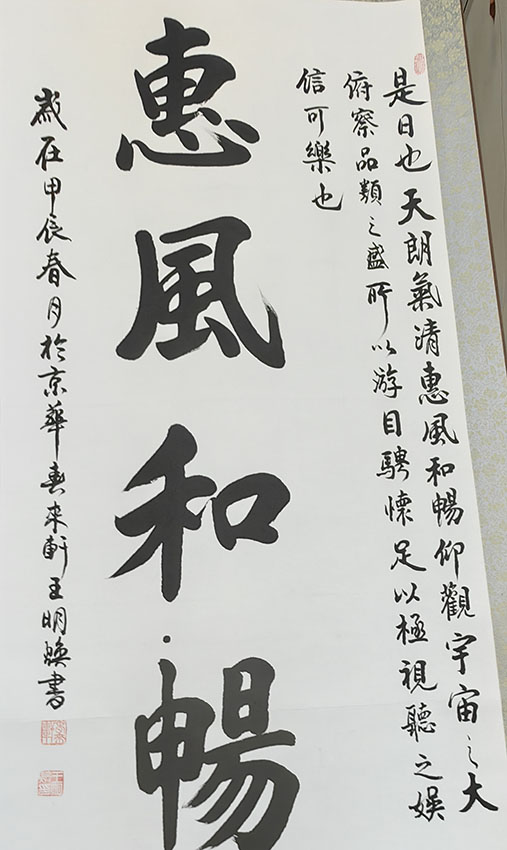 是日也天朗氣清惠風和暢仰觀宇宙之大
俯察品類之盛所以游目騁懷足以極視聽之娛
信可樂也
惠風和暢
歲在甲辰春月於京華春來軒王明煥書